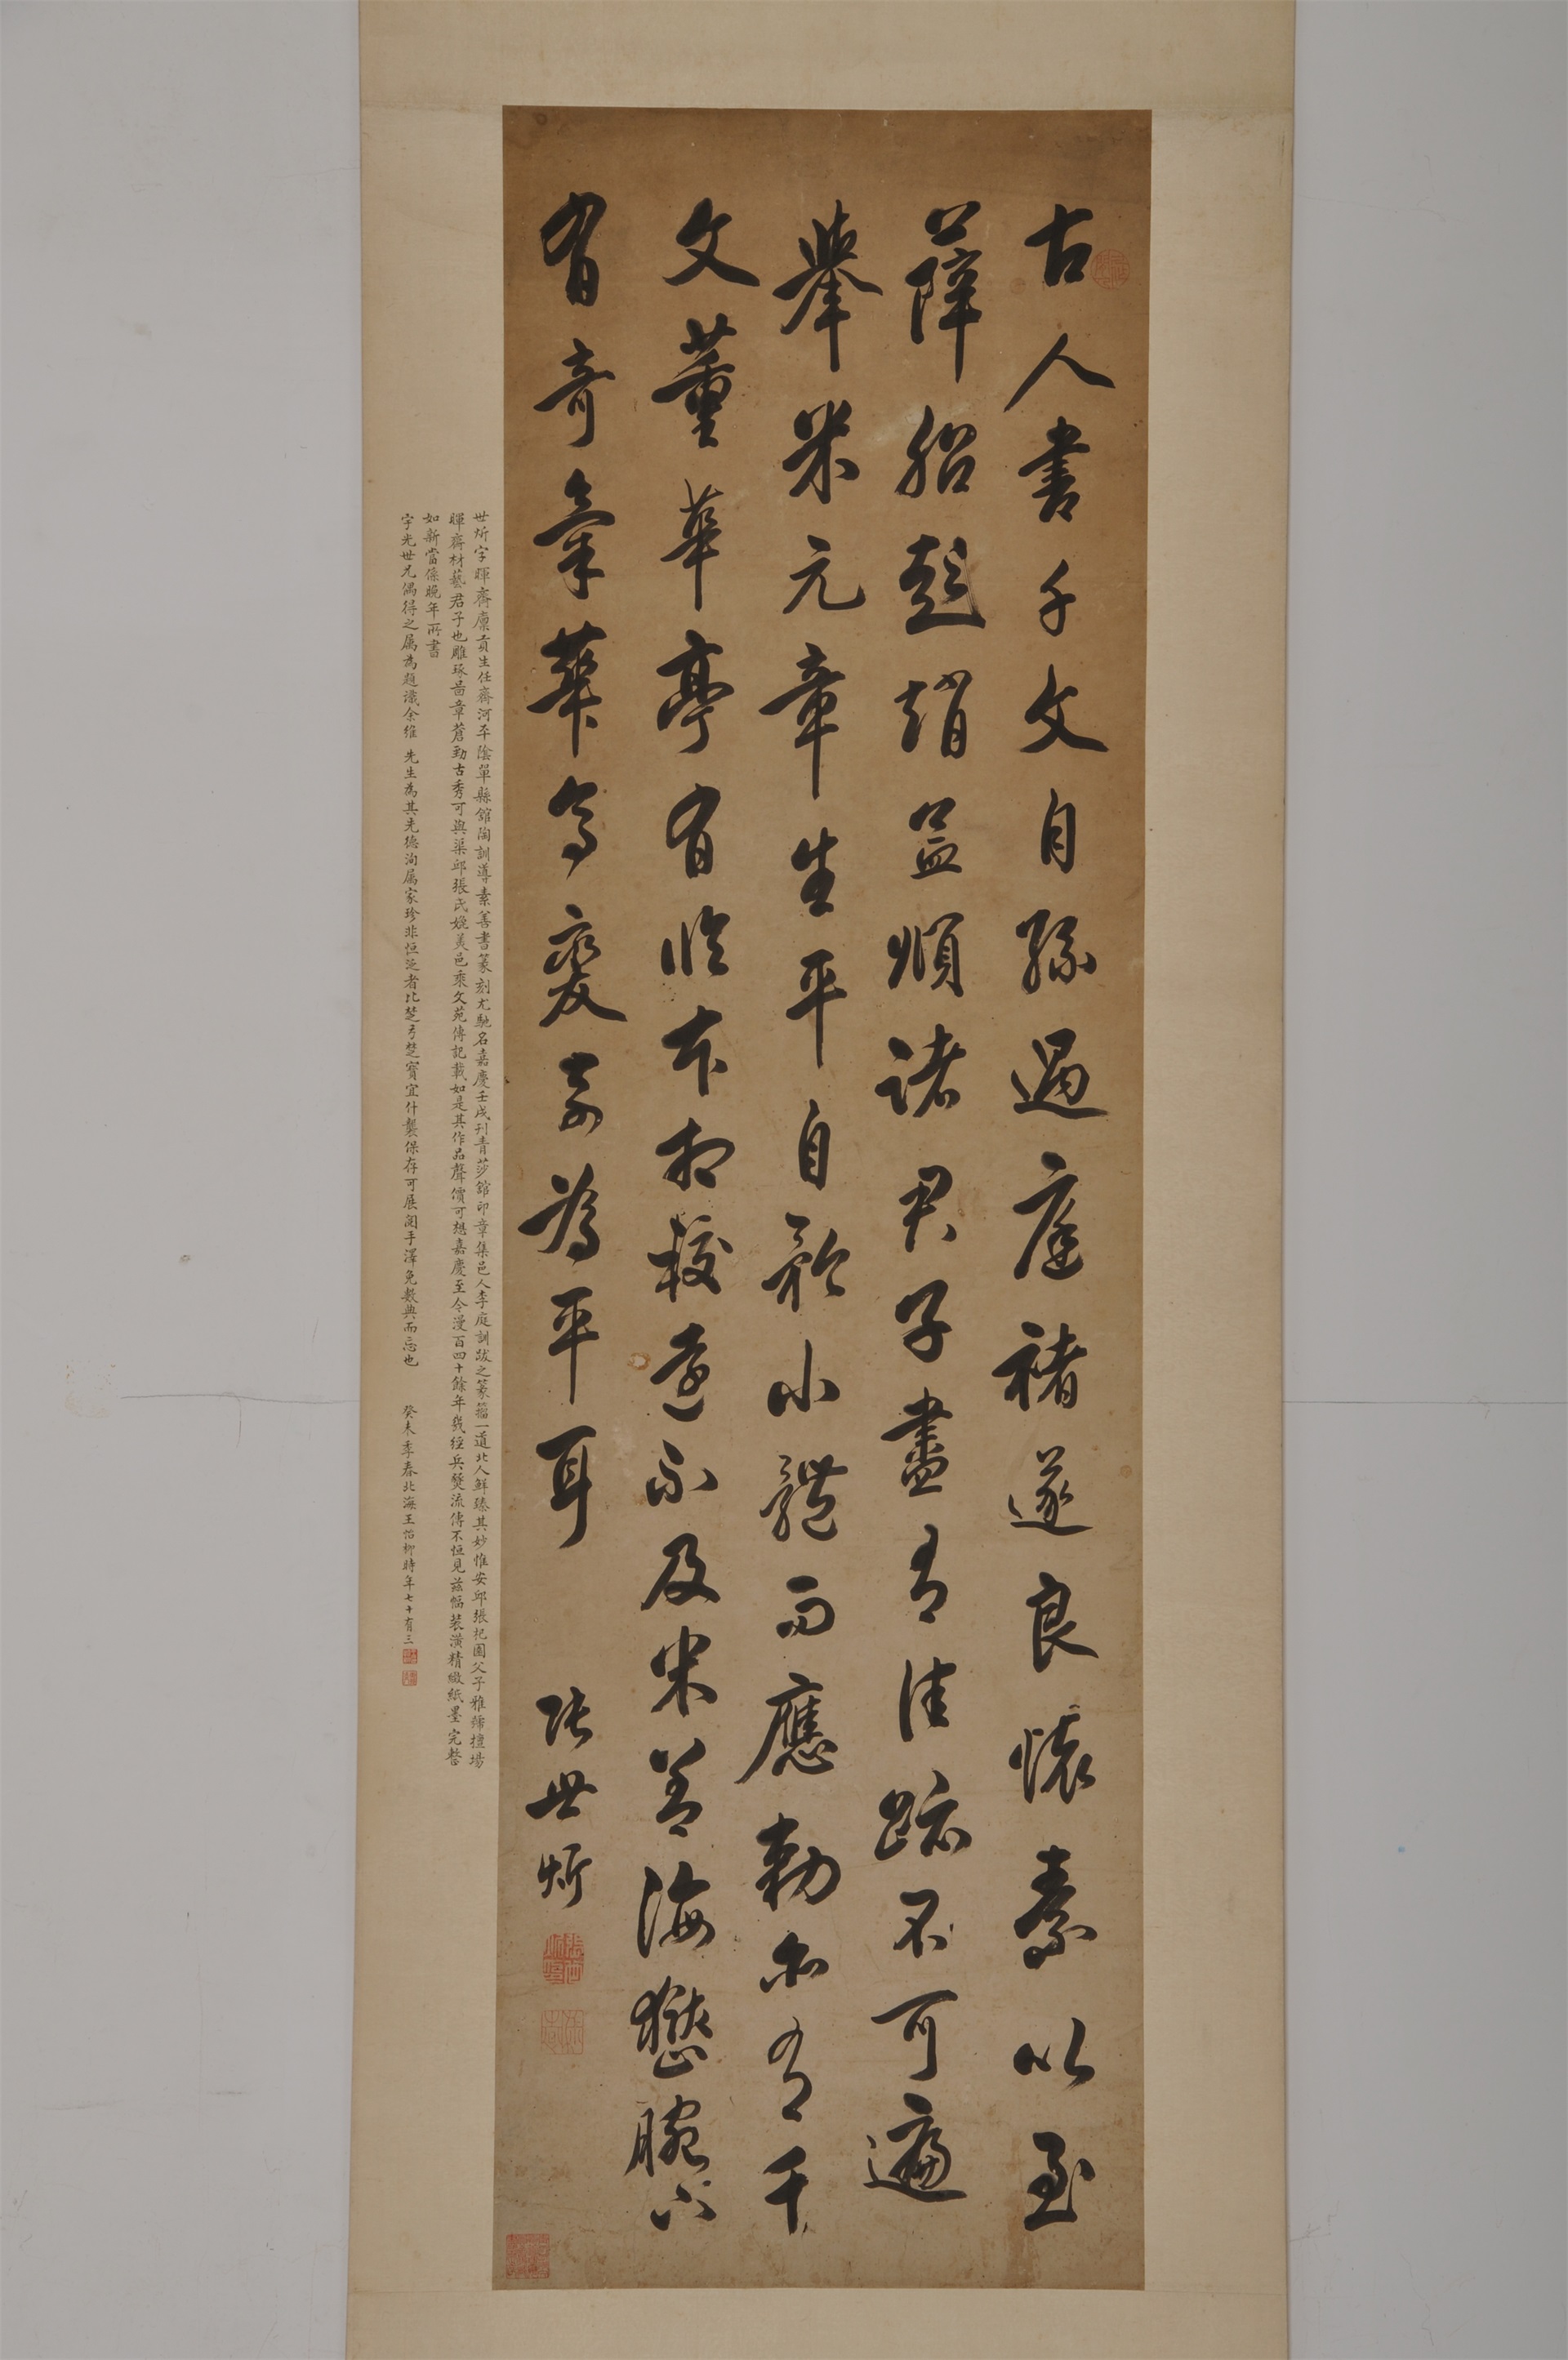 古人書千文自孫過庭褚遂良懷素以至
薛紹彭趙益頫諸君子盡有佳跡不可遍
舉米元章生平自歉小體而應勅亦有千
文董華亭有臨本相校遠不及米善海嶽腕下
有奇氣華亭處處為平耳
張世炘
世炘字暉齋廩貢生任齊河平陰單縣舘陶訓導素善書篆刻尤馳名嘉慶壬戌刊青莎舘印章集邑人李庭訓跋之篆籀一道北人鮮臻其妙惟安邱張杞園父子雅稱擅場
暉齋材藝君子也雕琢昌章蒼勁古秀可與渠邱張氏媲美邑乘文苑傳記載如是其作品聲價可想嘉慶至今漫百四十餘年幾經兵燹流傳不恒見茲幅裝潢精緻紙墨完整
如新當係晚年所書
字光世兄偶得之屬為題識余維 先生為其先德洵屬家珍非恒泛者比楚弓楚寶宜什襲保存可展閱手澤免數典而忘也 癸未季春北海王怡柳時年七十有三